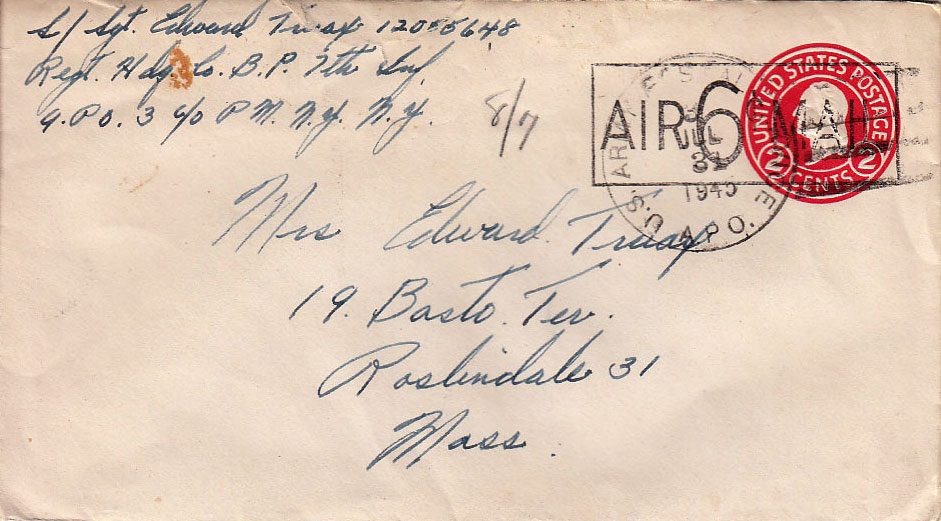 S/ Sgt. Edward Truax 12055648
Regt. Hdq. Co. B.P. 7th Inf.
A.P.O. 3 c/o P.M. N.Y. N.Y.
8/7
U.S. ARMY POSTAL SERVICE
A.P.O.
JUL
31
1945
AIR 6¢ MAIL
UNITED STATES POSTAGE
2 CENTS 2
Mrs Edward Truax
19. Basto. Ter.
Roslindale 31
Mass.